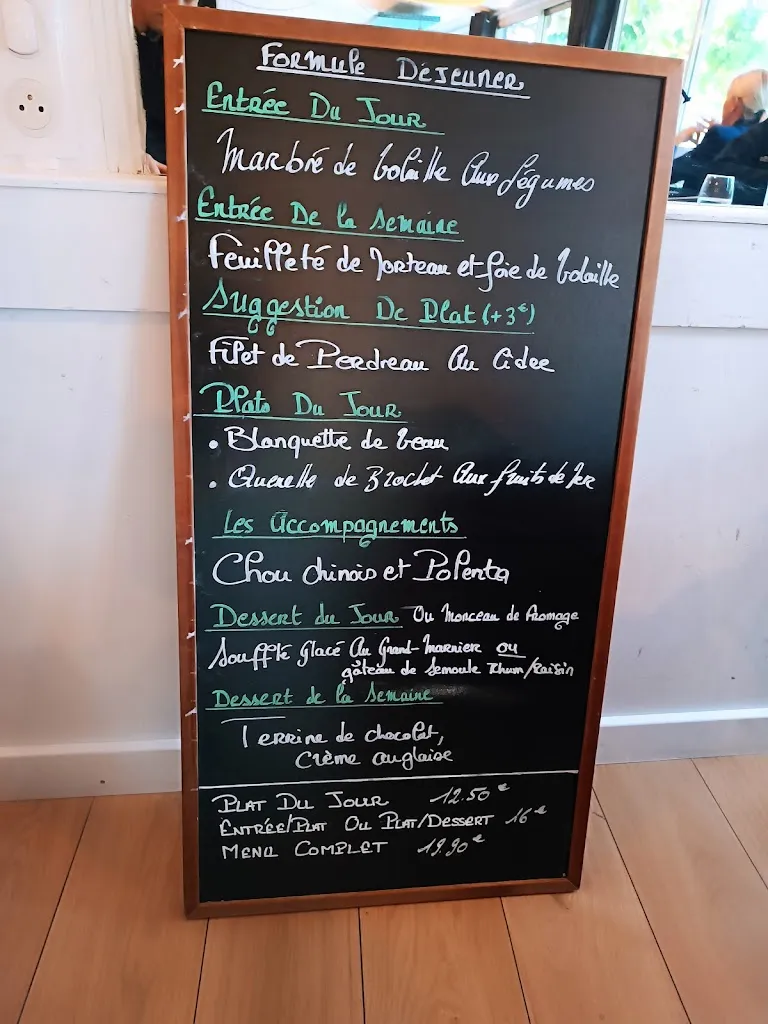 Formule Déjeuner
Entrée Du Jour
Marbré de volaille Aux légumes
Entrée De la Semaine
Feuilleté de Morteau et foie de volaille
Suggestion De Plat (+3€)
Filet de Perdreau Au Cidre
Plats Du Jour
• Blanquette de veau
• Quenelle de Brochet Aux fruits de Mer
Les Accompagnements
Chou chinois et Polenta
Dessert du Jour Ou Morceau de fromage
Soufflé glacé Au Grand-Marnier ou
gâteau de Semoule Rhum/Raisin
Dessert de la Semaine
Terrine de chocolat,
Crème anglaise
Plat Du Jour 12.50€
Entrée/Plat Ou Plat/Dessert 16€
Menu Complet 19.90€